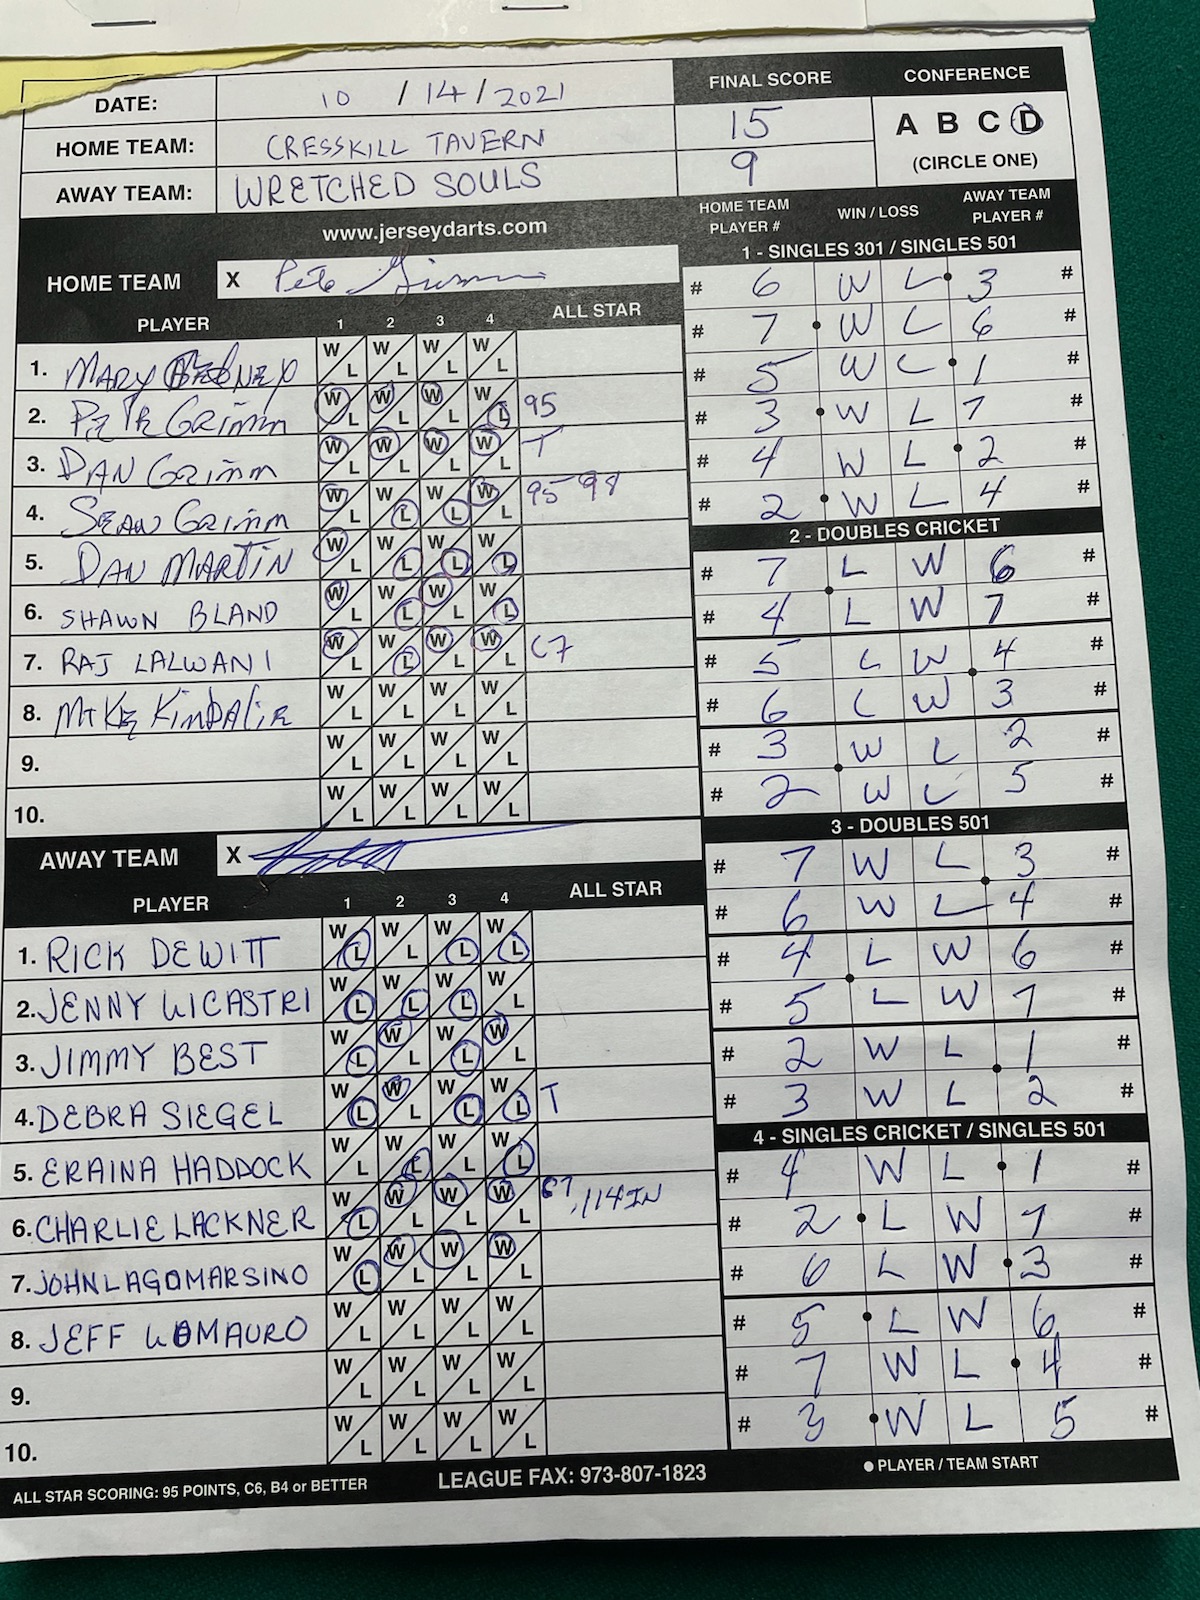 DATE: 10 / 14 / 2021
HOME TEAM: CRESSKILL TAVERN
AWAY TEAM: WRETCHED SOULS
FINAL SCORE
15
9
CONFERENCE
A B C D
(CIRCLE ONE)
www.jerseydarts.com
HOME TEAM X
PLAYER 1 2 3 4 ALL STAR
1. MARY W L W L W L W L
2. PETE GRIMM W L W L W L W L 95
3. DAN GRIMM W L W L W L W L T
4. SEAN GRIMM W L W L W L W L 95 98
5. DAN MARTIN W L W L W L W L
6. SHAWN BLAND W L W L W L W L
7. RAJ LALWANI W L W L W L W L C7
8. W L W L W L W L
9. W L W L W L W L
10. W L W L W L W L
AWAY TEAM X
PLAYER 1 2 3 4 ALL STAR
1. RICK DEWITT W L W L W L W L
2. JENNY LICASTRI W L W L W L W L
3. JIMMY BEST W L W L W L W L
4. DEBRA SIEGEL W L W L W L W L T
5. ERAINA HADDOCK W L W L W L W L
6. CHARLIE LACKNER W L W L W L W L C7, 114 IN
7. JOHN LAGOMARSINO W L W L W L W L
8. JEFF LOMAURO W L W L W L W L
9. W L W L W L W L
10. W L W L W L W L
ALL STAR SCORING: 95 POINTS, C6, B4 or BETTER
LEAGUE FAX: 973-807-1823
HOME TEAM PLAYER # WIN / LOSS AWAY TEAM PLAYER #
1 - SINGLES 301 / SINGLES 501
# 6 W L 3 #
# 7 W L 6 #
# 5 W L 1 #
# 3 W L 7 #
# 4 W L 2 #
# 2 W L 4 #
2 - DOUBLES CRICKET
# 7 L W 6 #
# 4 L W 7 #
# 5 L W 4 #
# 6 L W 3 #
# 3 W L 2 #
# 2 W L 5 #
3 - DOUBLES 501
# 7 W L 3 #
# 6 W L 4 #
# 4 L W 6 #
# 5 L W 7 #
# 2 W L 1 #
# 3 W L 2 #
4 - SINGLES CRICKET / SINGLES 501
# 4 W L 1 #
# 2 L W 7 #
# 6 L W 3 #
# 5 L W 6 #
# 7 W L 4 #
# 3 W L 5 #
PLAYER / TEAM START